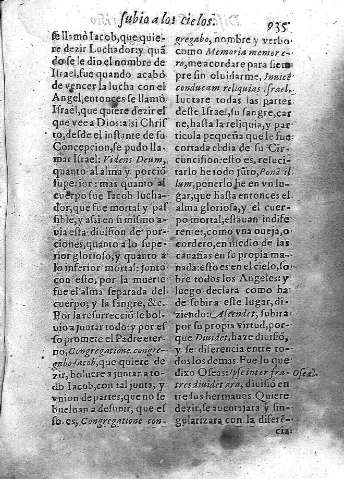 subio a los cielos.
935
se llamò Iacob, que quie-
re dezir Luchador: y quã
do se le dio el nombre de
Israel, fue quando acabò
de vencer la lucha con el
Angel, entonces se llamò
Israel, que quiere dezir el
que vee a Dios: assi Chris
to, desde el instante de su
Concepcion, se pudo lla-
mar Israel: Videns Deum,
quanto al alma y porciõ
superior: mas quanto al
cuerpo fue Iacob lucha-
dor, que fue mortal y pas
sible, y assi en si mismo a-
uia esta diuision de por-
ciones, quanto a lo supe-
rior glorioso, y quanto a
lo inferior mortal: junto
con esto, por la muerte
fue el alma separada del
cuerpo; y la sangre, &c.
Por la resurrecciõ se bol-
uio a juntar todo: y por es
so promete el Padre eter-
no, Congregatione congre-
gabo Iacob, que quiere de-
zir, boluere a juntar a to-
do Iacob, con tal junta, y
vnion de partes, que no se
bueluan a desunir, que es
so es, Congregatione con-
gregabo, nombre y verbo
como Memoria memor e-
ro, me acordare para siem
pre sin oluidarme,
conducam reliquias Israel,
juntare todas las partes
deste Israel, su sangre, car
ne, hasta la reliquia, y par
ticula pequeña que le fue
cortada el dia de su Cir-
cuncision: esto es, resuci-
tarlo he todo jũto, Ponã il
lum, ponerlo he en vn lu-
gar, que hasta entonces el
alma gloriosa, y el cuer-
po mortal, estauan indife
rentes, como vna oueja, o
cordero, en medio de las
cauañas en su propia ma-
nada: esto es en el cielo, so
bre todos los Angeles: y
luego declara como ha
de subir a este lugar, di-
ziendo: Ascendet, subira
por su propia virtud, por-
que Diuidet, haze diuisiõ,
y se diferencia entre to-
dos los demas. Fue lo que
dixo Oseas: Ipse inter fra-
Oseæ.
tres diuidet ara, diuisiõ en
tre sus hermanos. Quiere
dezir, se auentajara y sin-
gularizara con la diferẽ-
cia: